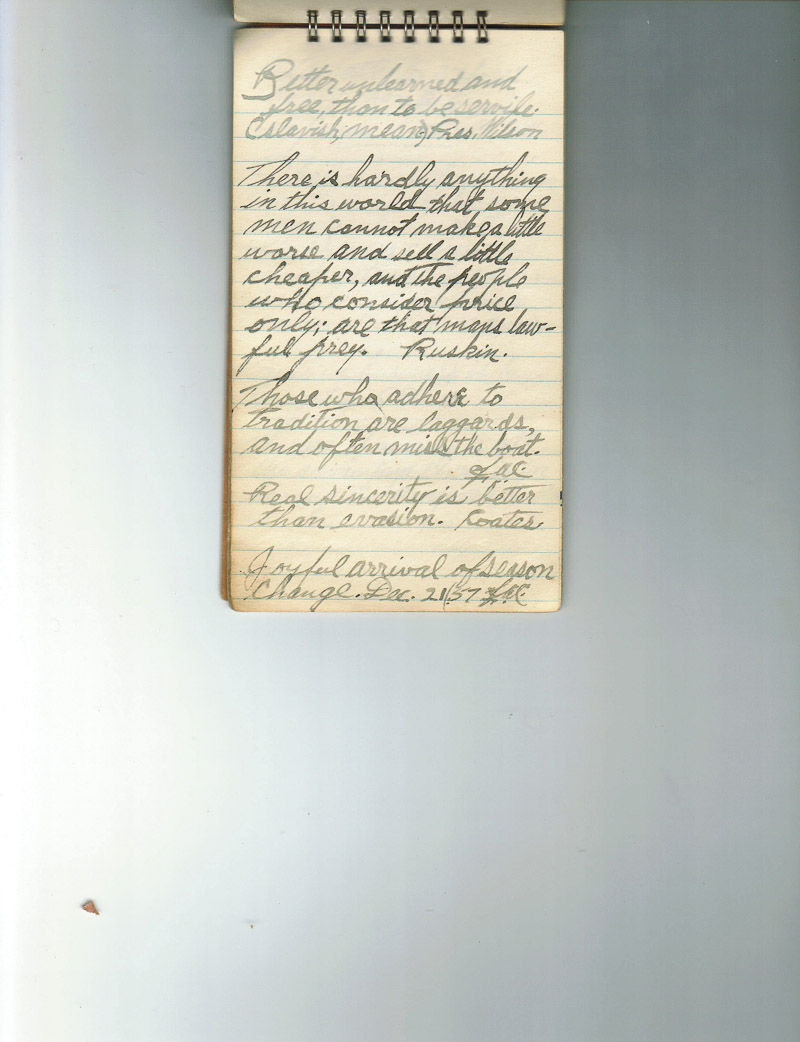 Better unlearned and
free, than to be servile.
(slavish, mean) Pres. Wilson
There is hardly anything
in this world that some
men cannot make a little
worse and sell a little
cheaper, and the people
who consider price
only; are that mans law-
ful prey. Ruskin.
Those who adhere to
tradition are laggards,
and often miss the boat.
Real sincerity is better
than evasion. Coates.
Joyful arrival of season
change. Dec. 21/57